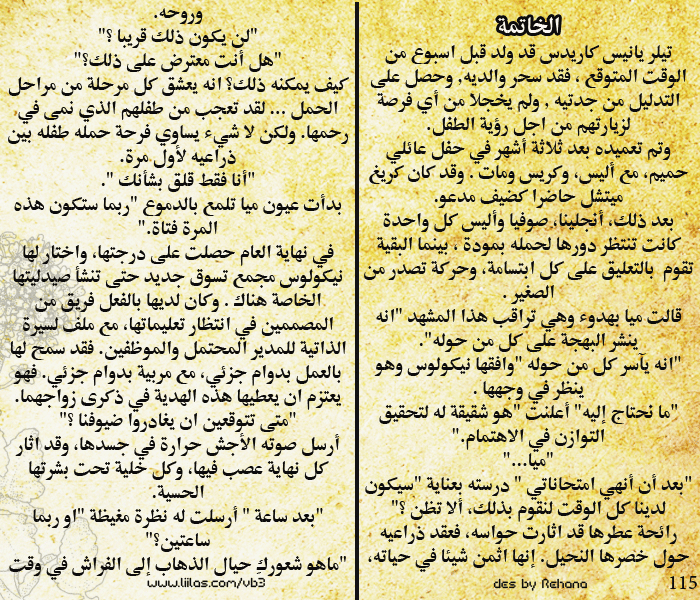 الخاتمة
تيلر يانيس كاريدس قد ولد قبل اسبوع من
الوقت المتوقع ، فقد سحر والديه, وحصل على
التدليل من جدتيه , ولم يخجلا من أي فرصة
لزيارتهم من اجل رؤية الطفل.
وتم تعميده بعد ثلاثة أشهر في حفل عائلي
حميم، مع أليس، وكريس ومات . وقد كان كريغ
ميتشل حاضرا كضيف مدعو.
بعد ذلك، أنجلينا، صوفيا وأليس كل واحدة
كانت تنتظر دورها لحمله بمودة . بينما البقية
تقوم بالتعليق على كل ابتسامة، وحركة تصدر من
الصغير .
قالت ميا بهدوء وهي تراقب هذا المشهد "انه
ينشر البهجة على كل من حوله".
"انه يآسر كل من حوله "وافقها نيكولوس وهو
ينظر في وجهها .
"ما نحتاج إليه" أعلنت "هو شقيقة له لتحقيق
التوازن في الاهتمام."
"ميا..."
"بعد أن أنهي امتحاناتي " درسته بعناية "سيكون
لدينا كل الوقت لنقوم بذلك، ألا تظن ؟"
رائحة عطرها قد اثارت حواسه، فعقد ذراعيه
حول خصرها النحيل. إنها اثمن شيئا في حياته،
وروحه.
"لن يكون ذلك قريبا ؟"
"هل أنت معترض على ذلك؟"
كيف يمكنه ذلك؟ انه يعشق كل مرحلة من مراحل
الحمل ... لقد تعجب من طفلهم الذي نمى في
رحمها. ولكن لا شيء يساوي فرحة حمله طفله بين
ذراعيه لأول مرة.
"أنا فقط قلق بشأنك ".
بدأت عيون ميا تلمع بالدموع "ربما ستكون هذه
المرة فتاة."
في نهاية العام حصلت على درجتها، واختار لها
نيكولوس مجمع تسوق جديد حتى تنشأ صيدليتها
الخاصة هناك . وكان لديها بالفعل فريق من
المصممين في انتظار تعليماتها، مع ملف لسيرة
الذاتية للمدير المحتمل والموظفين. فقد سمح لها
بالعمل بدوام جزئي، مع مربية بدوام جزئي. فهو
يعتزم ان يعطيها هذه الهدية في ذكرى زواجهما.
"متى تتوقعين ان يغادروا ضيوفنا ؟"
أرسل صوته الأجش حرارة في جسدها، وقد اثار
كل نهاية عصب فيها، وكل خلية تحت بشرتها
الحسية.
"بعد ساعة " أرسلت له نظرة مغيظة "او ربما
ساعتين؟"
"ماهو شعوركِ حيال الذهاب إلى الفراش في وقت
www.liilas.com/vb3
des by Rehana
115